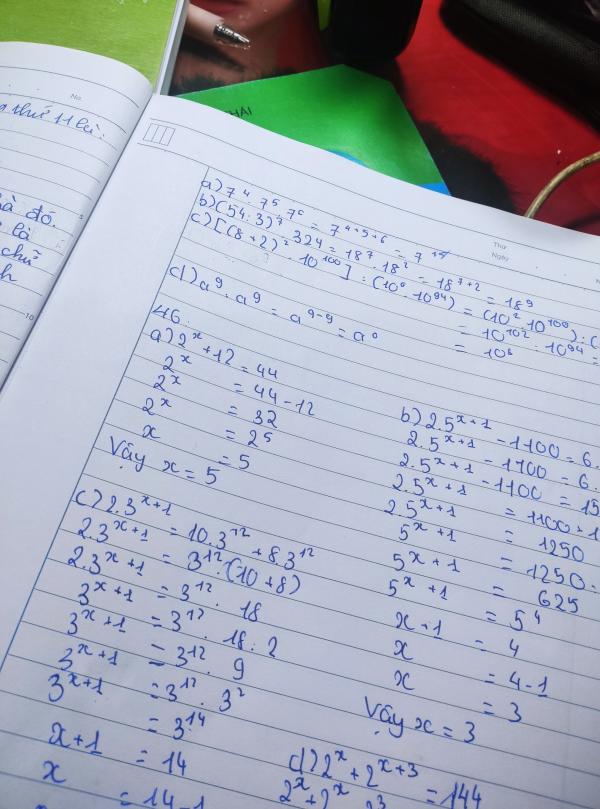 HAI
No
thứ 11 là:
đó.
là
chữ
Thứ
Ngày
No
a) 7⁴ . 7⁵ . 7⁶ = 7⁴⁺⁵⁺⁶ = 7¹⁵
b) (54:3)⁷ . 324 = 18⁷ . 18² = 18⁷⁺² = 18⁹
c) [(8+2)² . 10¹⁰⁰] : (10⁰ . 10⁹⁴) = (10² . 10¹⁰⁰) : (
= 10¹⁰² : 10⁹⁴ =
= 10⁸
d) a⁹ : a⁹ = a⁹⁻⁹ = a⁰
46.
a) 2ˣ + 12 = 44
2ˣ = 44 - 12
2ˣ = 32
2ˣ = 2⁵
x = 5
Vậy x = 5
b) 2.5ˣ⁺¹ - 1100 = 6.
2.5ˣ⁺¹ - 1100 = 6.
2.5ˣ⁺¹ - 1100 = 15
2.5ˣ⁺¹ = 1100 + 1
2.5ˣ⁺¹ = 1250
5ˣ⁺¹ = 1250:
5ˣ⁺¹ = 625
5ˣ⁺¹ = 5⁴
x+1 = 4
x = 4-1
x = 3
Vậy x = 3
c) 2.3ˣ⁺¹ = 10.3¹² + 8.3¹²
2.3ˣ⁺¹ = 3¹² . (10+8)
2.3ˣ⁺¹ = 3¹² . 18
3ˣ⁺¹ = 3¹² . 18:2
3ˣ⁺¹ = 3¹² . 9
3ˣ⁺¹ = 3¹² . 3²
3ˣ⁺¹ = 3¹⁴
x+1 = 14
x = 14-1
d) 2ˣ + 2ˣ⁺³ = 144